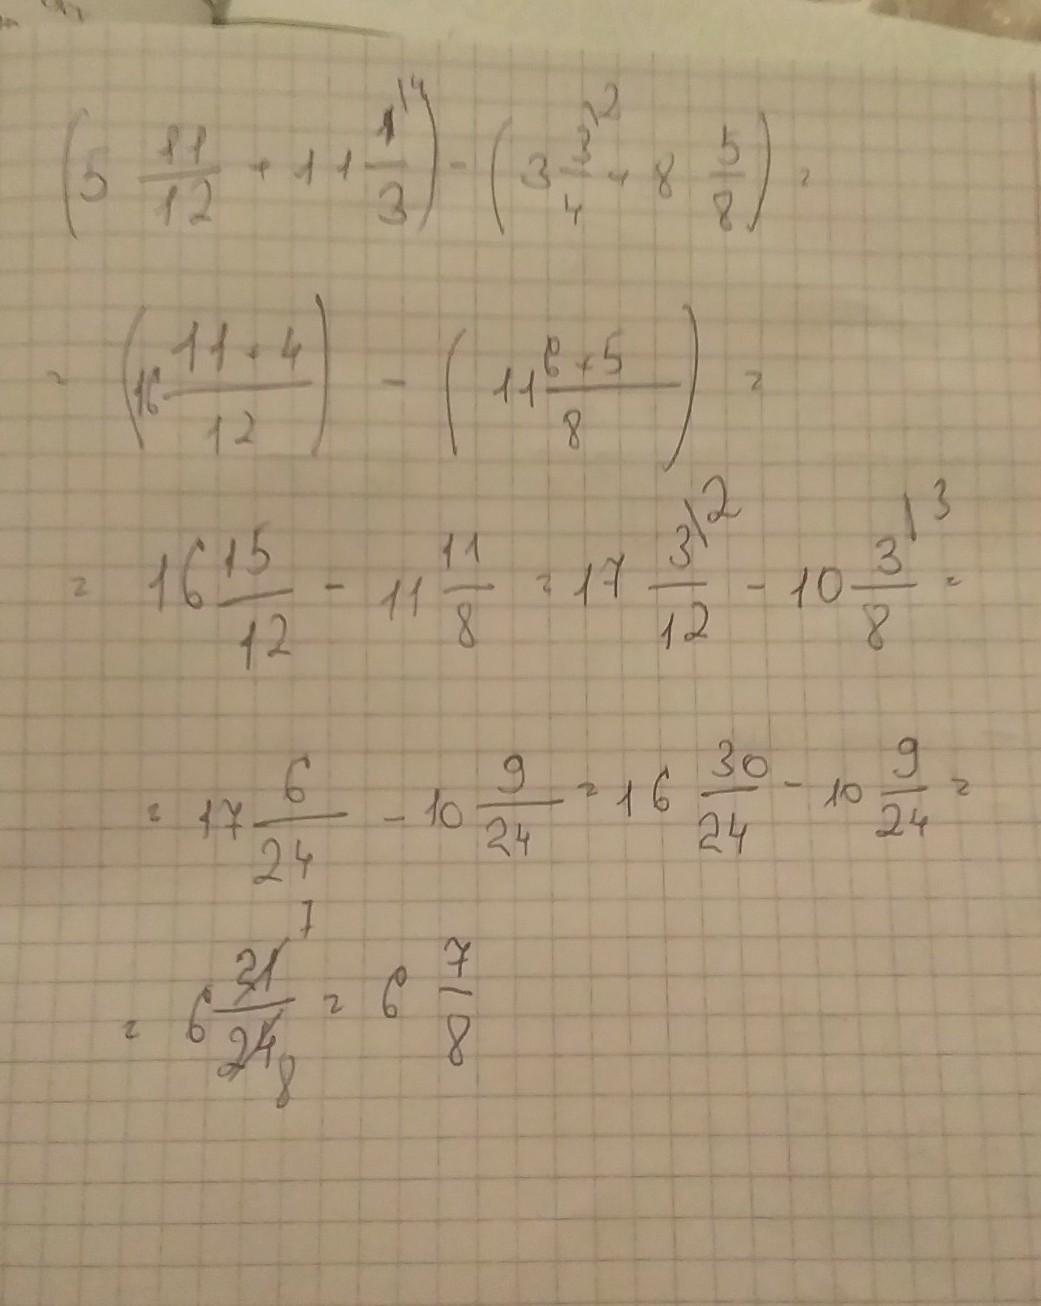 (5 11/12 + 11 1/3\4) - (3 3/4\2 + 8 5/8) =
= (16 11+4/12) - (11 6+5/8) =
= 16 15/12 - 11 11/8 = 17 3/12\2 - 10 3/8\3 =
= 17 6/24 - 10 9/24 = 16 30/24 - 10 9/24 =
= 6 21/24 7/8 = 6 7/8